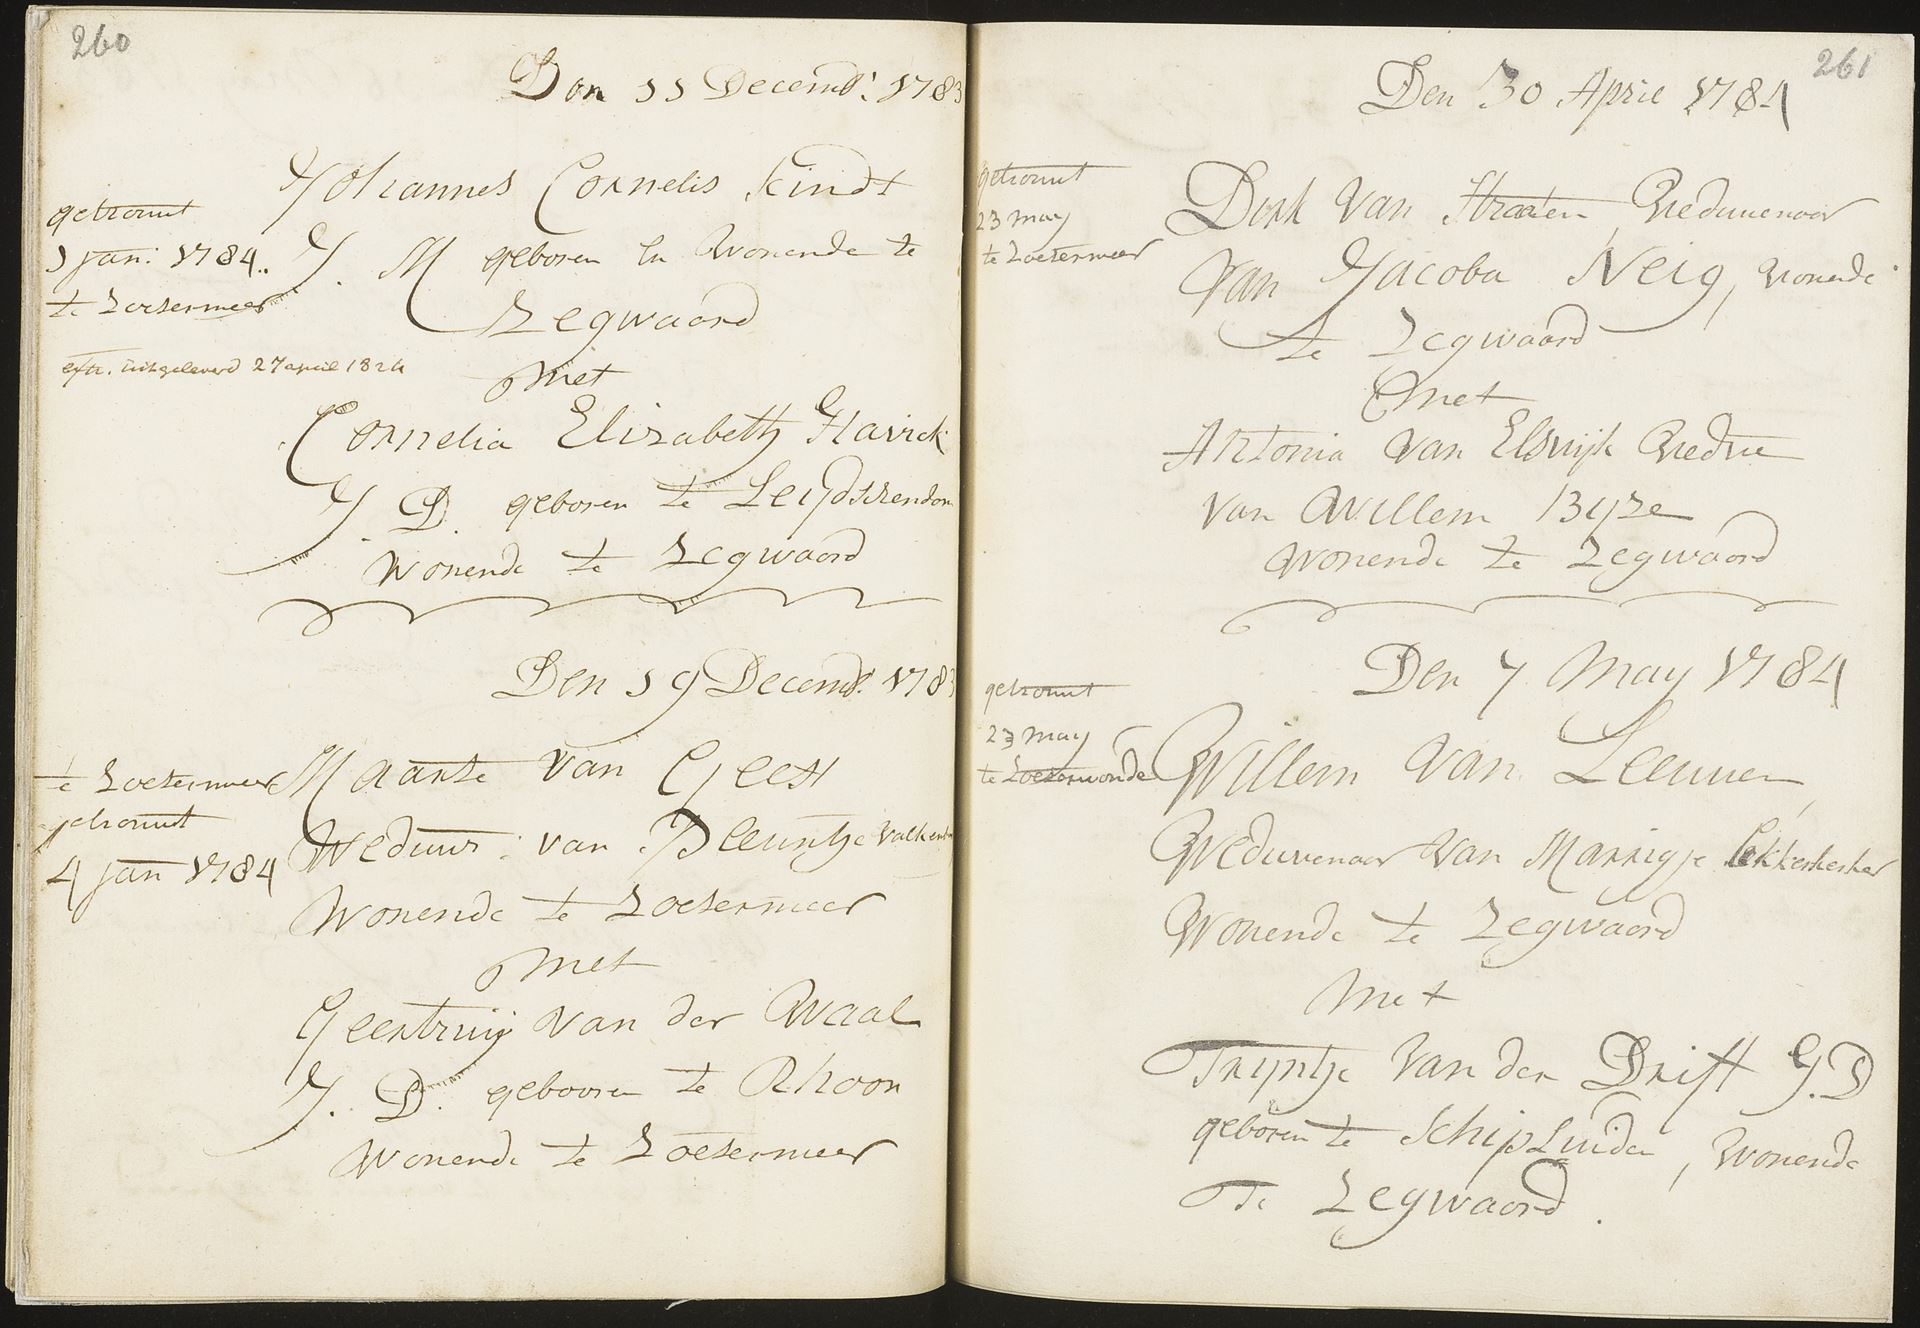 260
Den 11 Decemb: 1783
Johannes Cornelis Kindt
getrouwt
J. M geboren En Wonende te
1 jan: 1784..
te Zoetermeer
Zegwaard
extr. uitgeleverd 27 april 1824
met
Cornelia Elizabeth Havick
J. D. geboren te Leijdschendam
Wonende te Zegwaard
Den 19 Decemb: 1783
te Zoetermeer
Maarte van Geest
getrouwt
Weduwr: van Pleuntje Valkenb
4 jan 1784
Wonende te Zoetermeer
met
Geertruij van der Waal
J. D. gebooren te Rhoon
Wonende te Zoetermeer
261
Den 30 April 1784
getrouwt
23 may
te Zoetermeer
Dirk Van Straaten, Weduwenaar
Van Jacoba Neig, Wonende
te Zegwaard
met
Antonia Van Elswijk Wedue
Van Willem Bijze
Wonende te Zegwaard
Den 7 May 1784
getrouwt
23 may
te Zoeterwoude
Willem Van Leeuwen,
Weduwenaar Van Marrigje Lekkerkerker
Wonende te Zegwaard
Met
Trijntje Van der Drift J.D
geboren te Schipluiden, Wonende
Te Zegwaard.